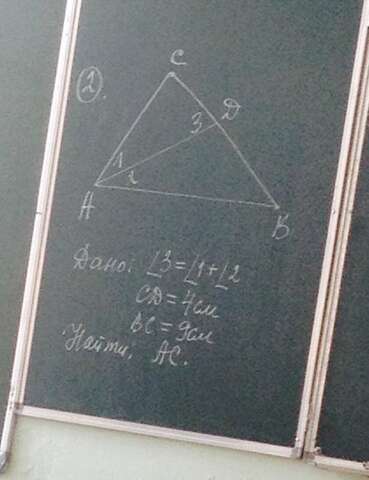 2.
C
3 D
1
2
A
B
Дано: ∠3=∠1+∠2
CD=4см
BC=9см
Найти: AC.